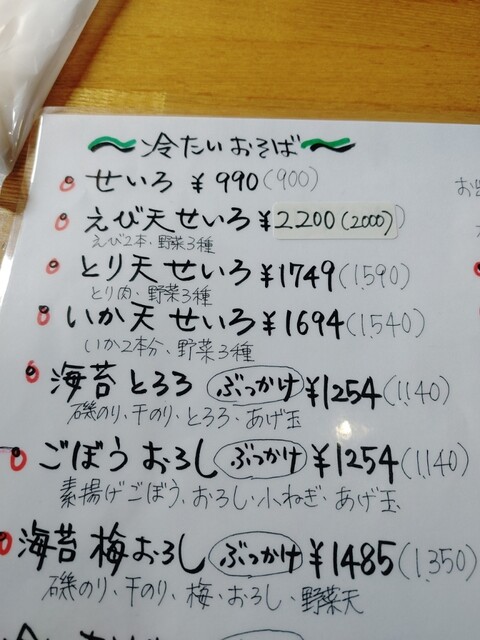 冷たいおそば
せいろ ¥990(900)
えび天せいろ¥2200(2000)
えび2本・野菜3種
とり天せいろ¥1749(1590)
とり肉、野菜3種
いか天せいろ¥1694(1540)
いか2本分、野菜3種
海苔とろろ ぶっかけ ¥1254(1140)
磯のり、干のり、とろろ、あげ玉
ごぼうおろし ぶっかけ ¥1254(1140)
素揚げごぼう、おろし・小ねぎ・あげ玉
海苔梅おろし ぶっかけ ¥1485(1350)
磯のり、干のり、梅・おろし・野菜天